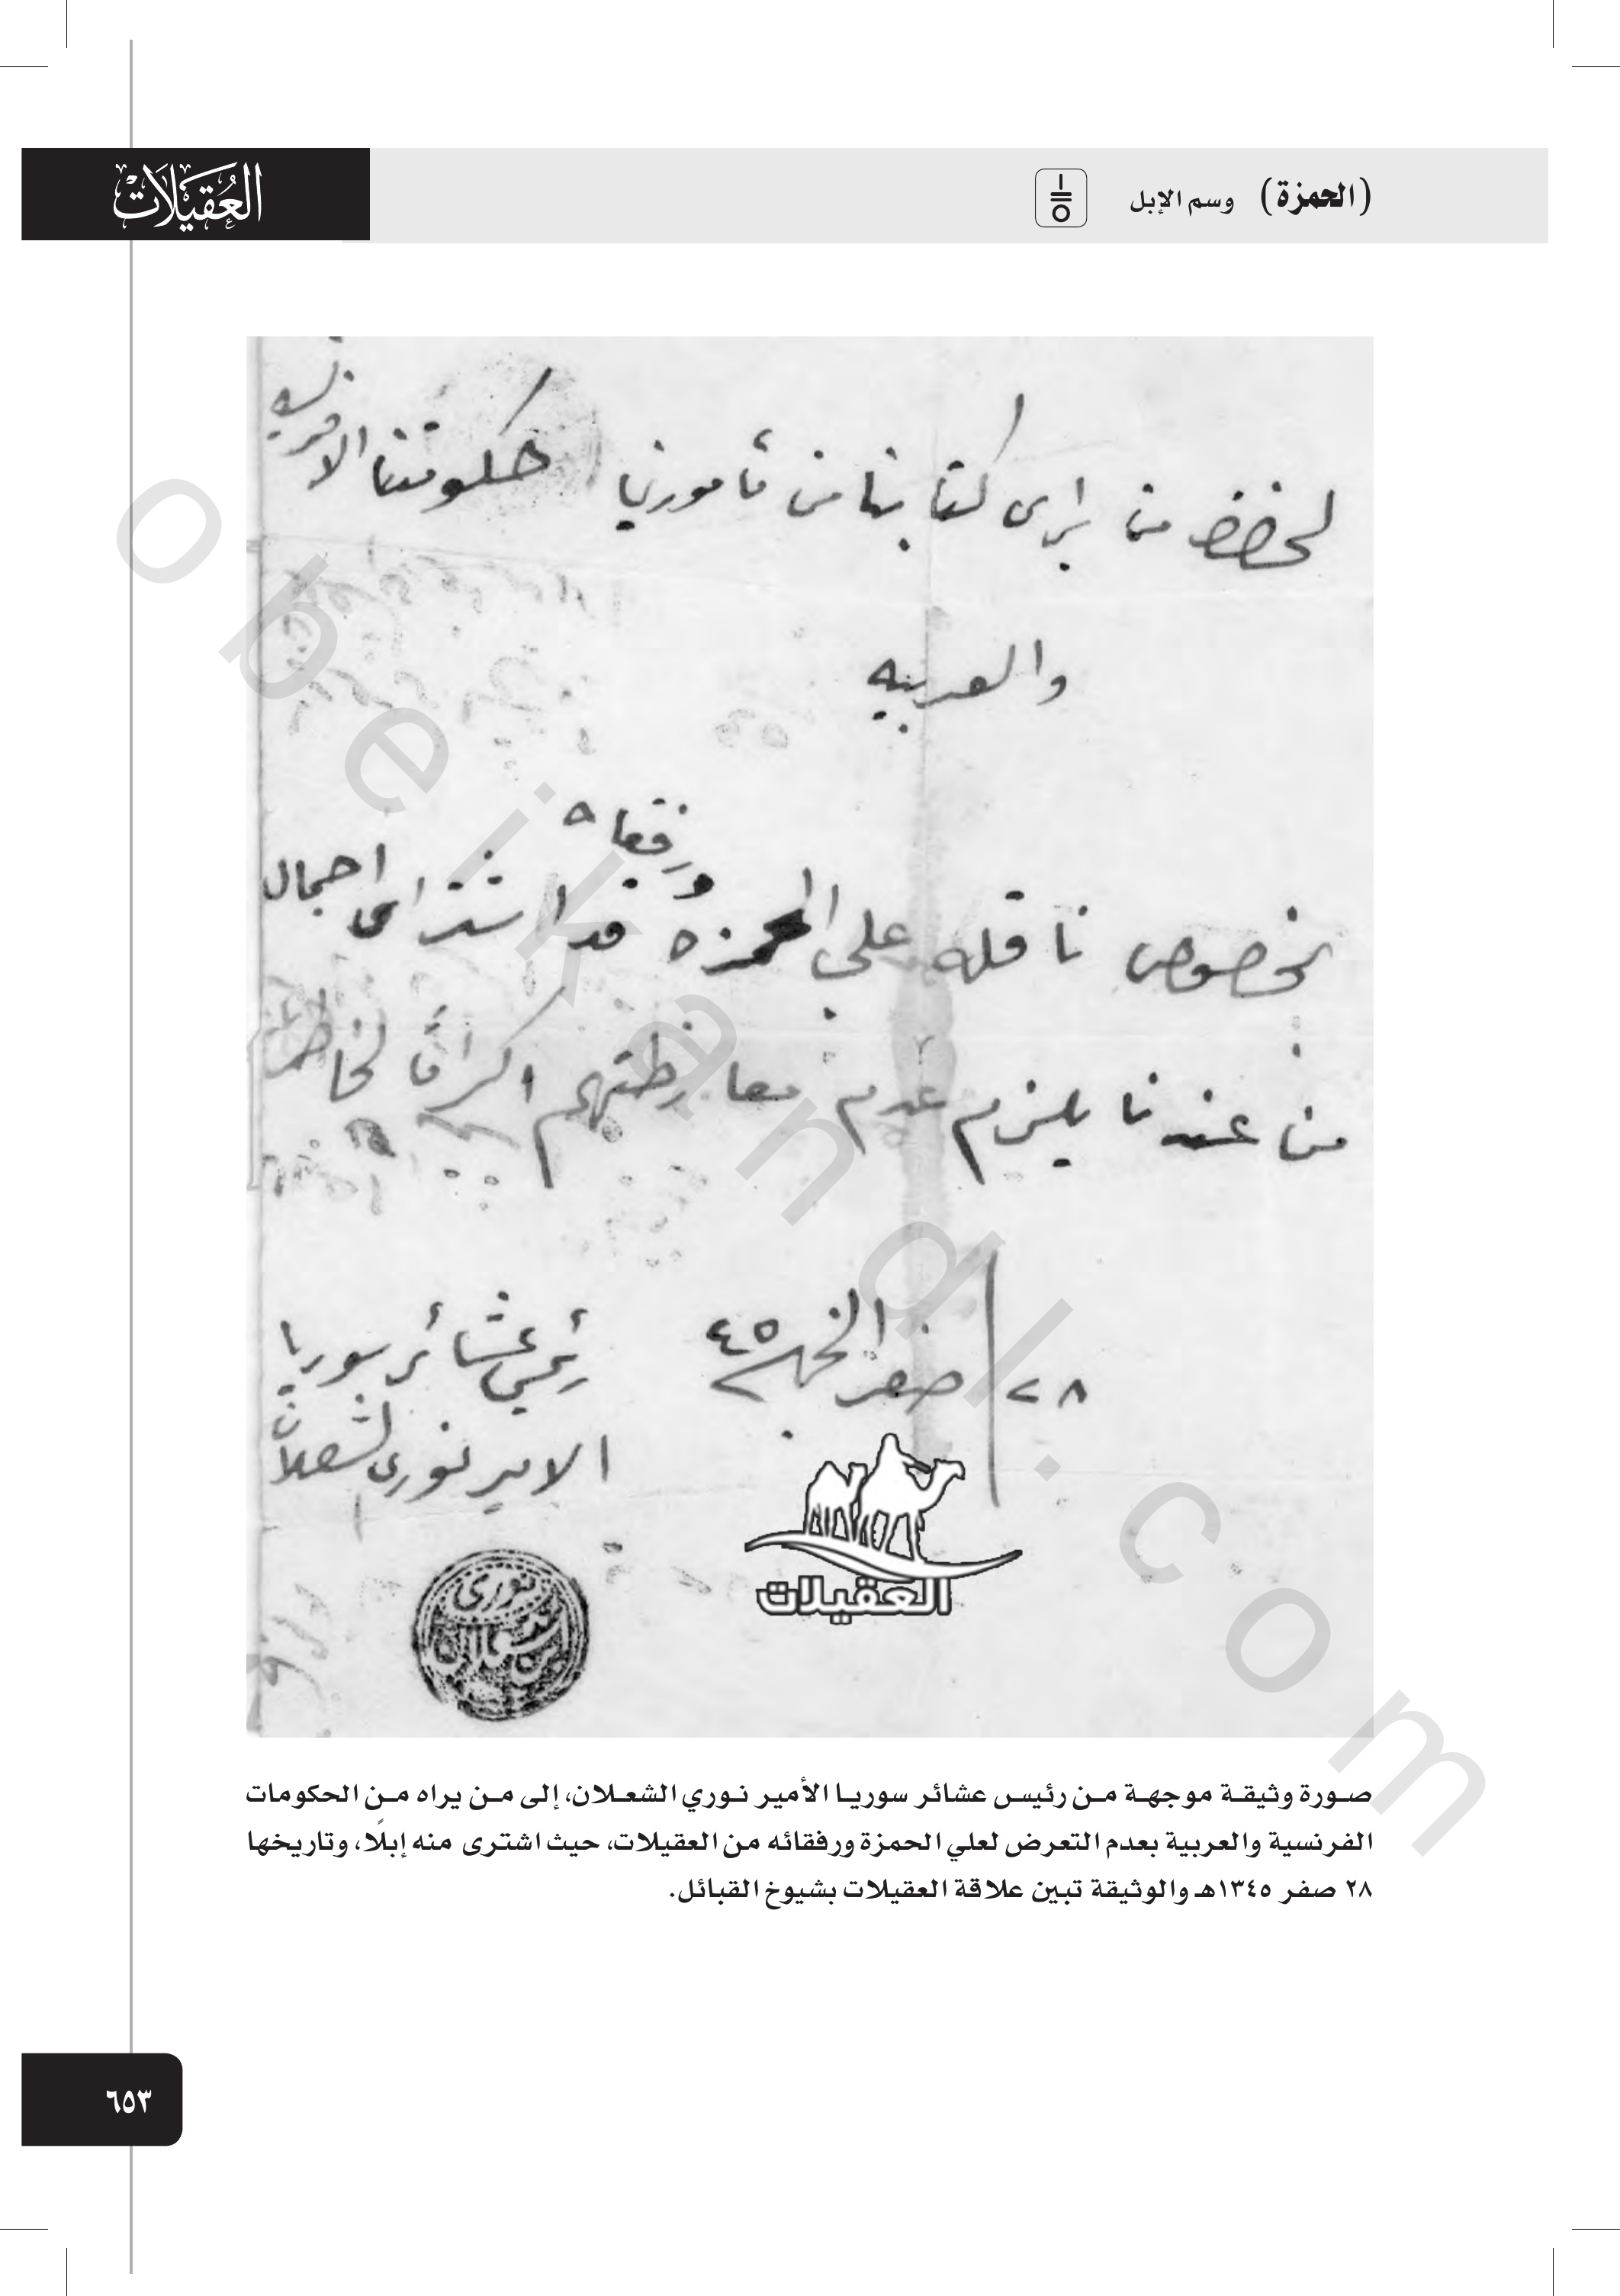 (الحمزة) وسم الإبل
العُقَيْلَات
لحضض من يراى كتابنا من مأمورين حكومتنا الافرنسيه
والعربيه
بخصوص ناقله علي الحمزه ورفقاه قد اشتراى اجمال
من عندنا يلزم عدم معارظتهم اكراماً لخاطر
٢٨ صفر الخير ٤٥
رئيس عشائر سوريا
الامير نوري الشعلان
نوري
الشعلان
العقيلات
صورة وثيقة موجهة من رئيس عشائر سوريا الأمير نوري الشعلان، إلى من يراه من الحكومات
الفرنسية والعربية بعدم التعرض لعلي الحمزة ورفقائه من العقيلات، حيث اشترى منه إبلًا، وتاريخها
٢٨ صفر ١٣٤٥هـ والوثيقة تبين علاقة العقيلات بشيوخ القبائل.
٦٥٣
obeikandl.com